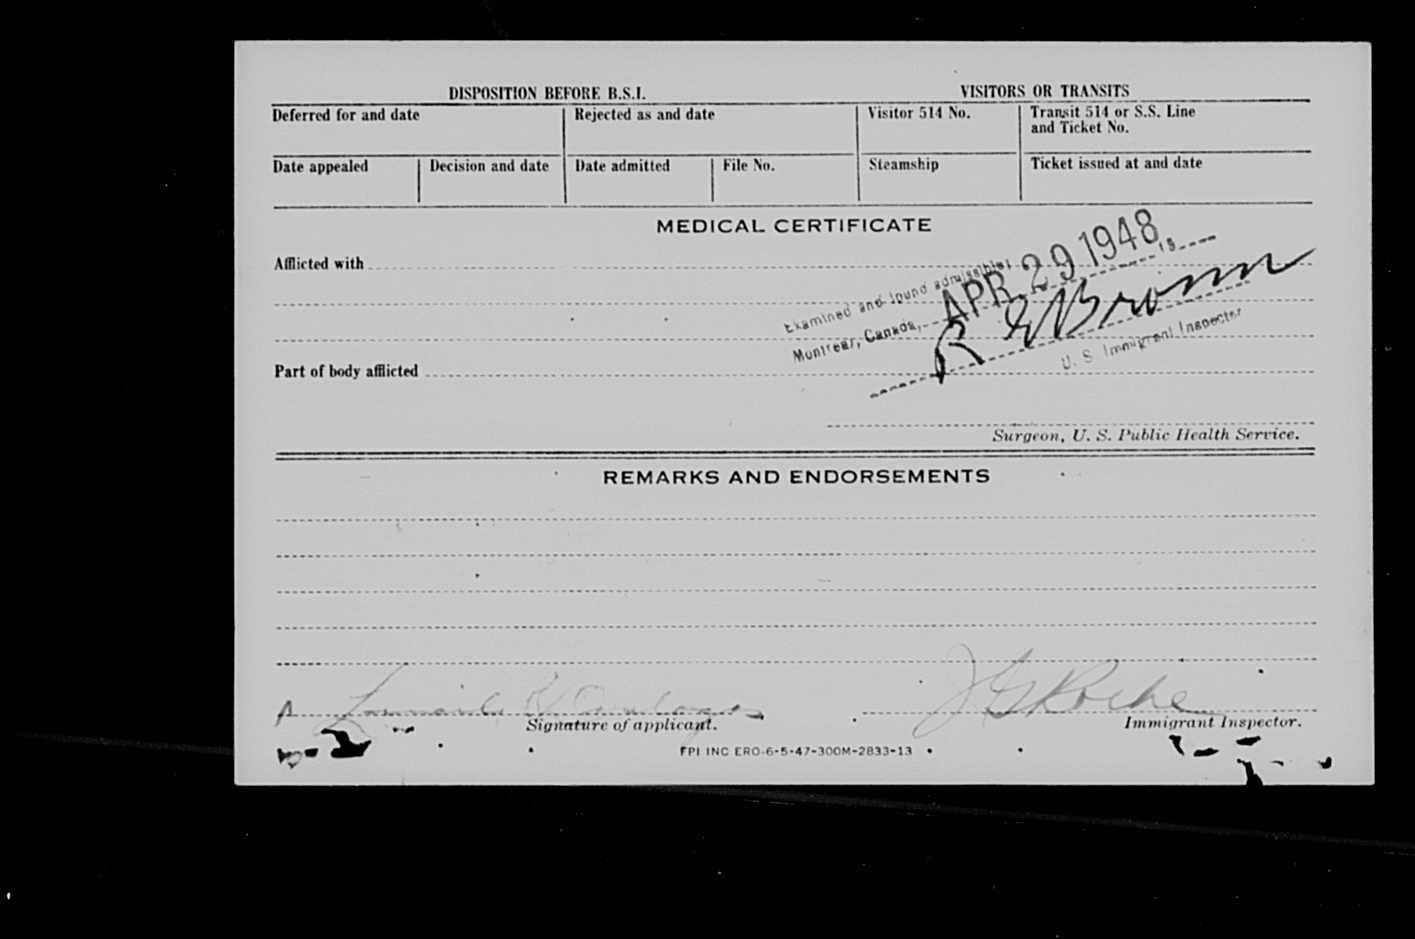 DISPOSITION BEFORE B.S.I.
VISITORS OR TRANSITS
Deferred for and date
Rejected as and date
Visitor 514 No.
Transit 514 or S.S. Line
and Ticket No.
Date appealed
Decision and date
Date admitted
File No.
Steamship
Ticket issued at and date
MEDICAL CERTIFICATE
Afflicted with
Examined and found admissible:
Montreal, Canada, APR 29 1948 19
R E Brown
U. S. Immigrant Inspector
Part of body afflicted
Surgeon, U. S. Public Health Service.
REMARKS AND ENDORSEMENTS
J G Roche
Signature of applicant.
Immigrant Inspector.
FPI INC ERO-6-5-47-300M-2833-13